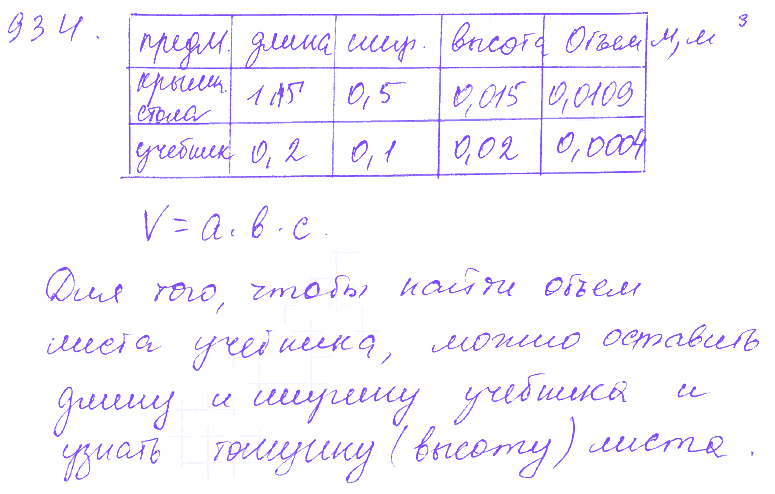 934.
предм. длина шир. высота Объем м, м³
крышк. стола 1,15 0,5 0,015 0,0109
учебник 0,2 0,1 0,02 0,0004
V = a·в·c.
Для того, чтобы найти объем
листа учебника, можно оставить
длину и ширину учебника и
узнать толщину (высоту) листа.